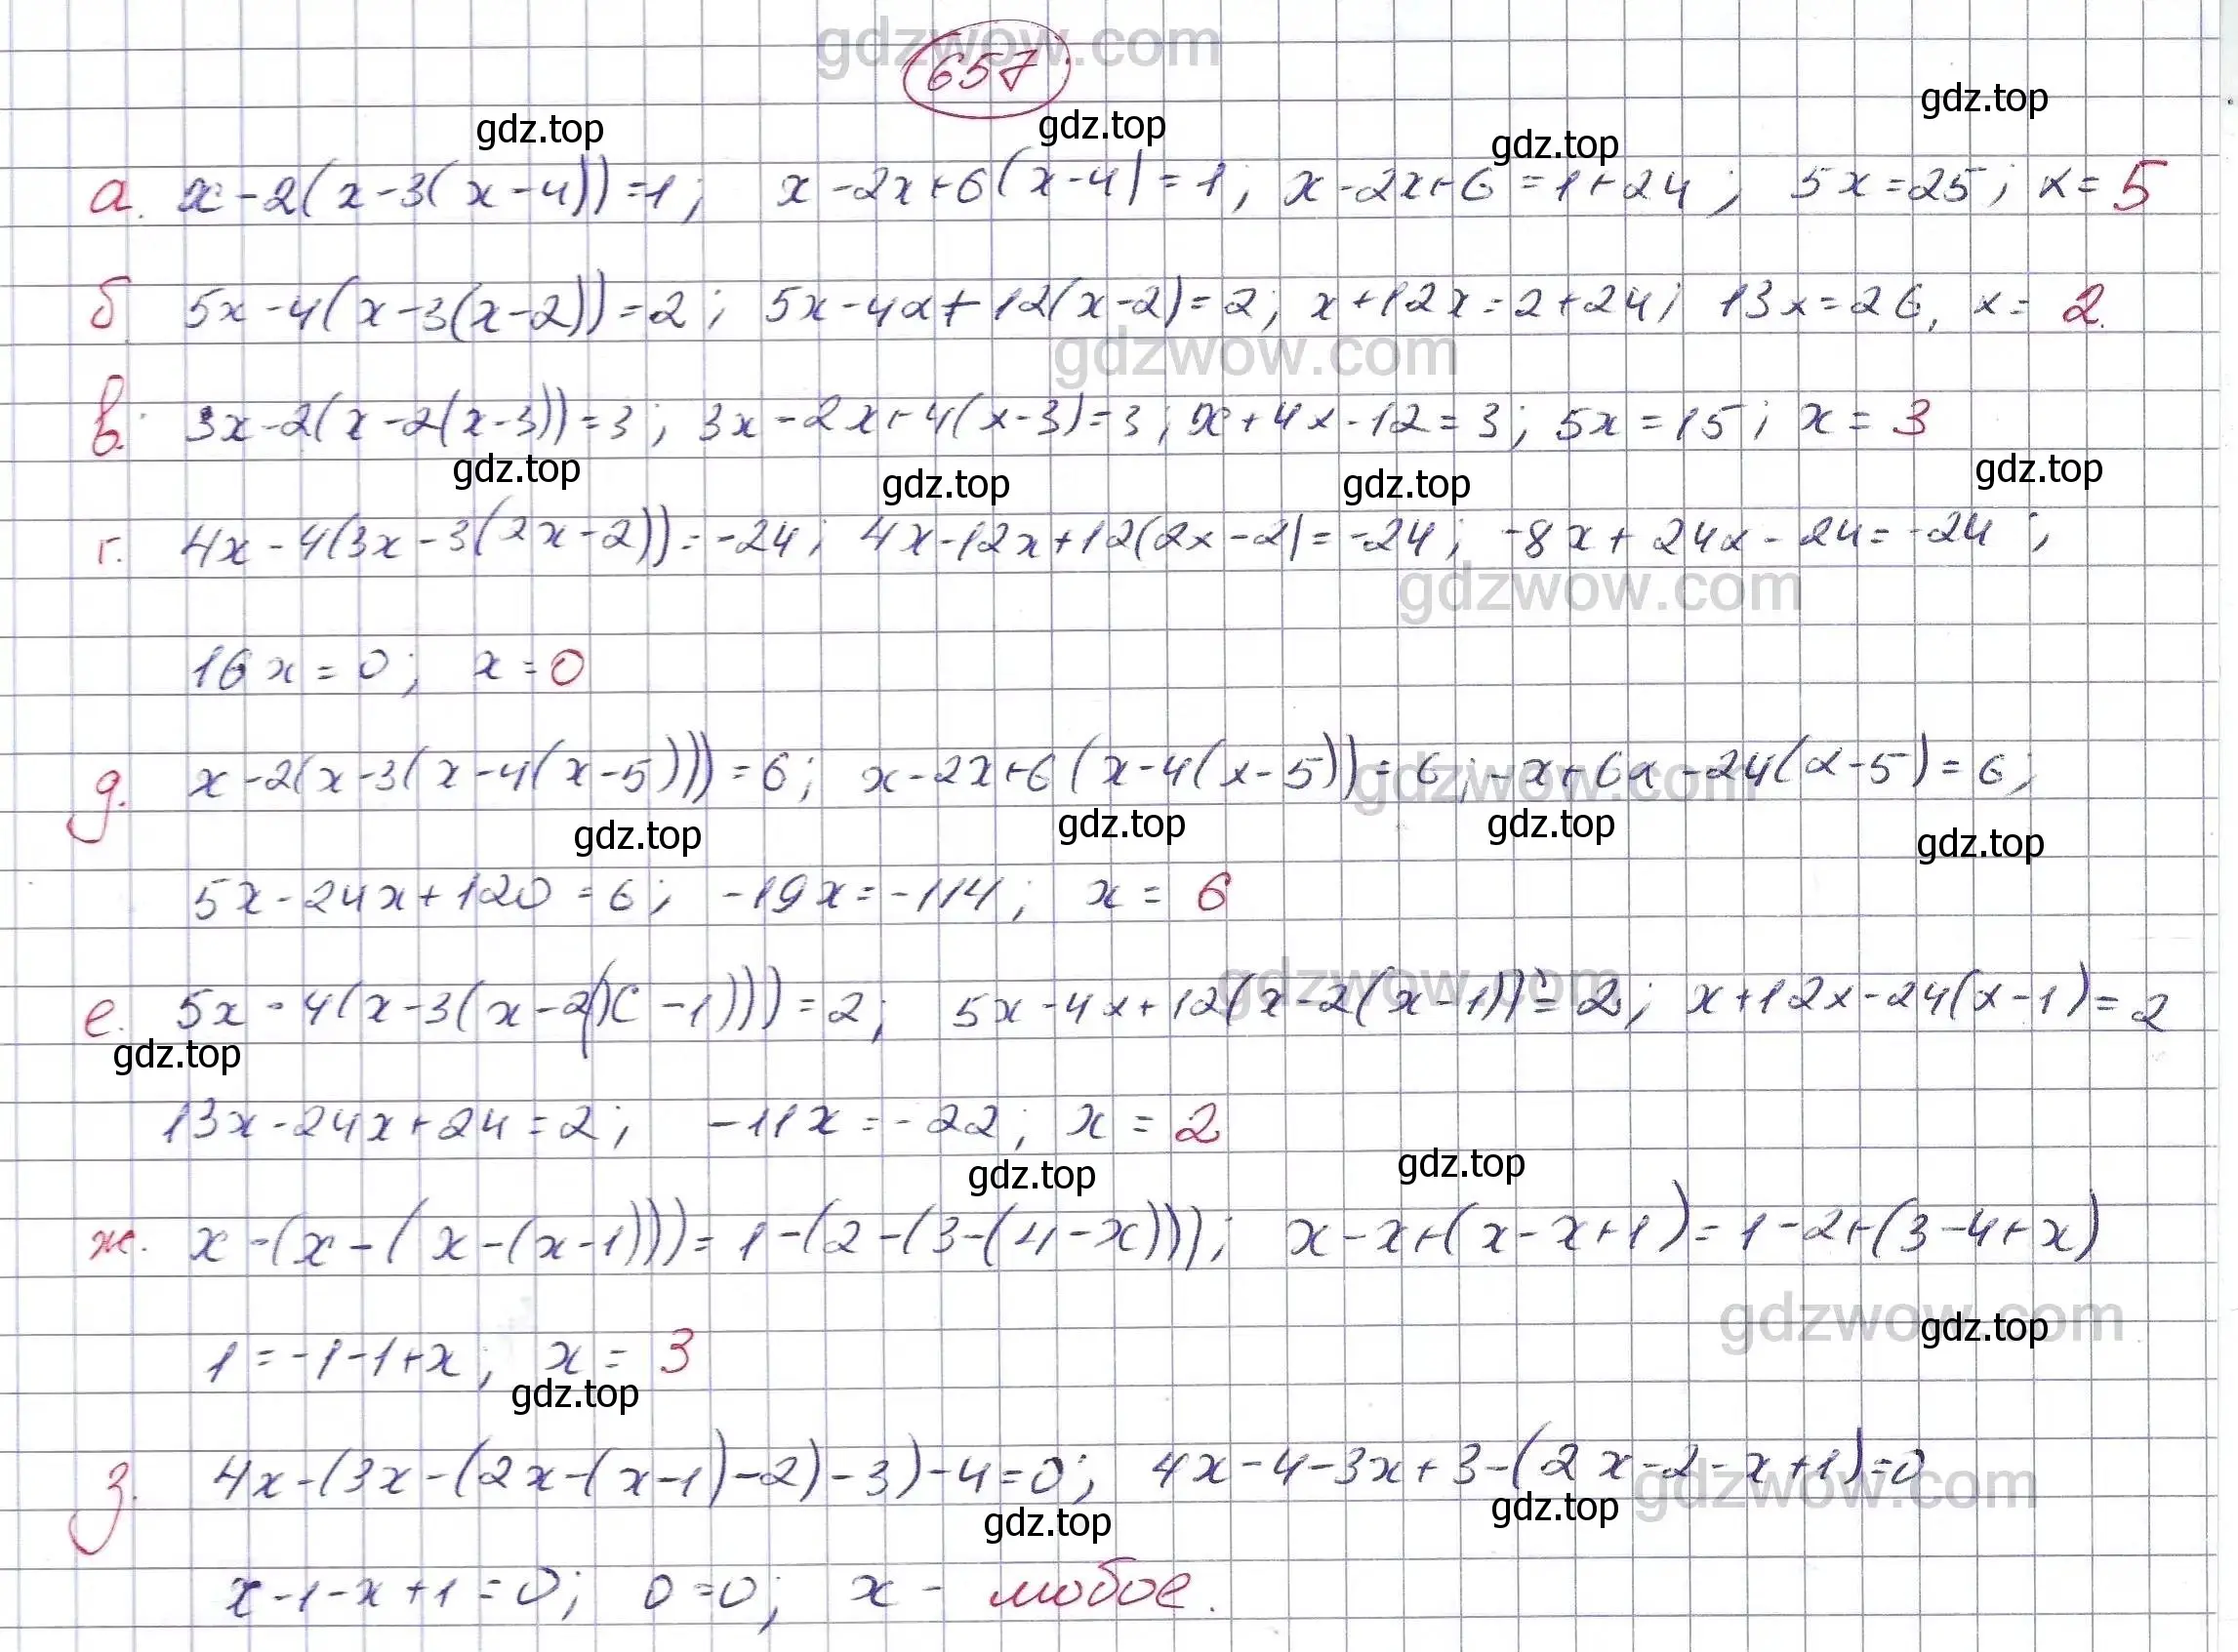 gdzwow.com
657
gdz.top gdz.top gdz.top gdz.top
а. x-2(x-3(x-4))=1; x-2x+6(x-4)=1, x-2x+6=1+24; 5x=25; x=5
б 5x-4(x-3(x-2))=2; 5x-4x+12(x-2)=2; x+12x=2+24; 13x=26, x=2.
gdzwow.com
в. 3x-2(x-2(x-3))=3; 3x-2x+4(x-3)=3; x+4x-12=3; 5x=15; x=3
gdz.top gdz.top gdz.top gdz.top
г. 4x-4(3x-3(2x-2))=-24; 4x-12x+12(2x-2)=-24; -8x+24x-24=-24;
gdzwow.com
16x=0; x=0
д. x-2(x-3(x-4(x-5)))=6; x-2x+6(x-4(x-5))=6; -x+6x-24(x-5)=6;
gdzwow.com
gdz.top gdz.top gdz.top gdz.top
5x-24x+120=6; -19x=-114; x=6
gdzwow.com
е. 5x-4(x-3(x-2(x-1)))=2; 5x-4x+12(x-2(x-1))=2; x+12x-24(x-1)=2
gdz.top
13x-24x+24=2; -11x=-22; x=2
gdz.top gdz.top
ж. x-(x-(x-(x-1)))=1-(2-(3-(4-x))); x-x+(x-x+1)=1-2+(3-4+x)
gdzwow.com
gdz.top
1=-1-1+x; x=3
gdz.top
з. 4x-(3x-(2x-(x-1)-2)-3)-4=0; 4x-4-3x+3-(2x-2-x+1)=0
gdzwow.com
gdz.top gdz.top
x-1-x+1=0; 0=0; x - любое.